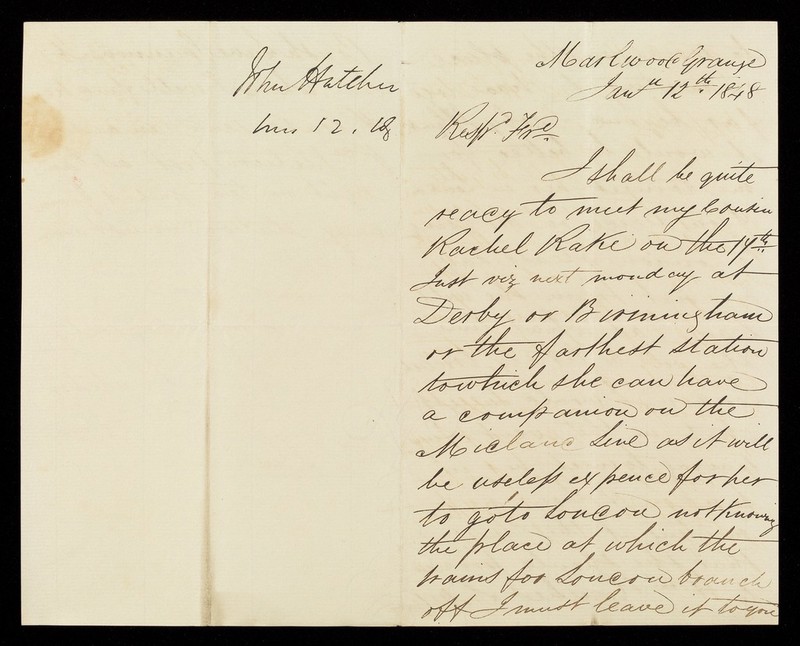 John Hatcher
12. 48
Marlwood Grange
Janry 12th. 1848
Respd. Frd.
I shall be quite
ready to meet my Cousin
Rachel Rake on the 17th
Inst viz next monday at
Derby or Birmingham
or the farthest station
to which she can have
a companion on the
Midland Line as it will
be useless expence for her
to go to London not knowing
the place at which the
trains for London branch
off I must leave it to you